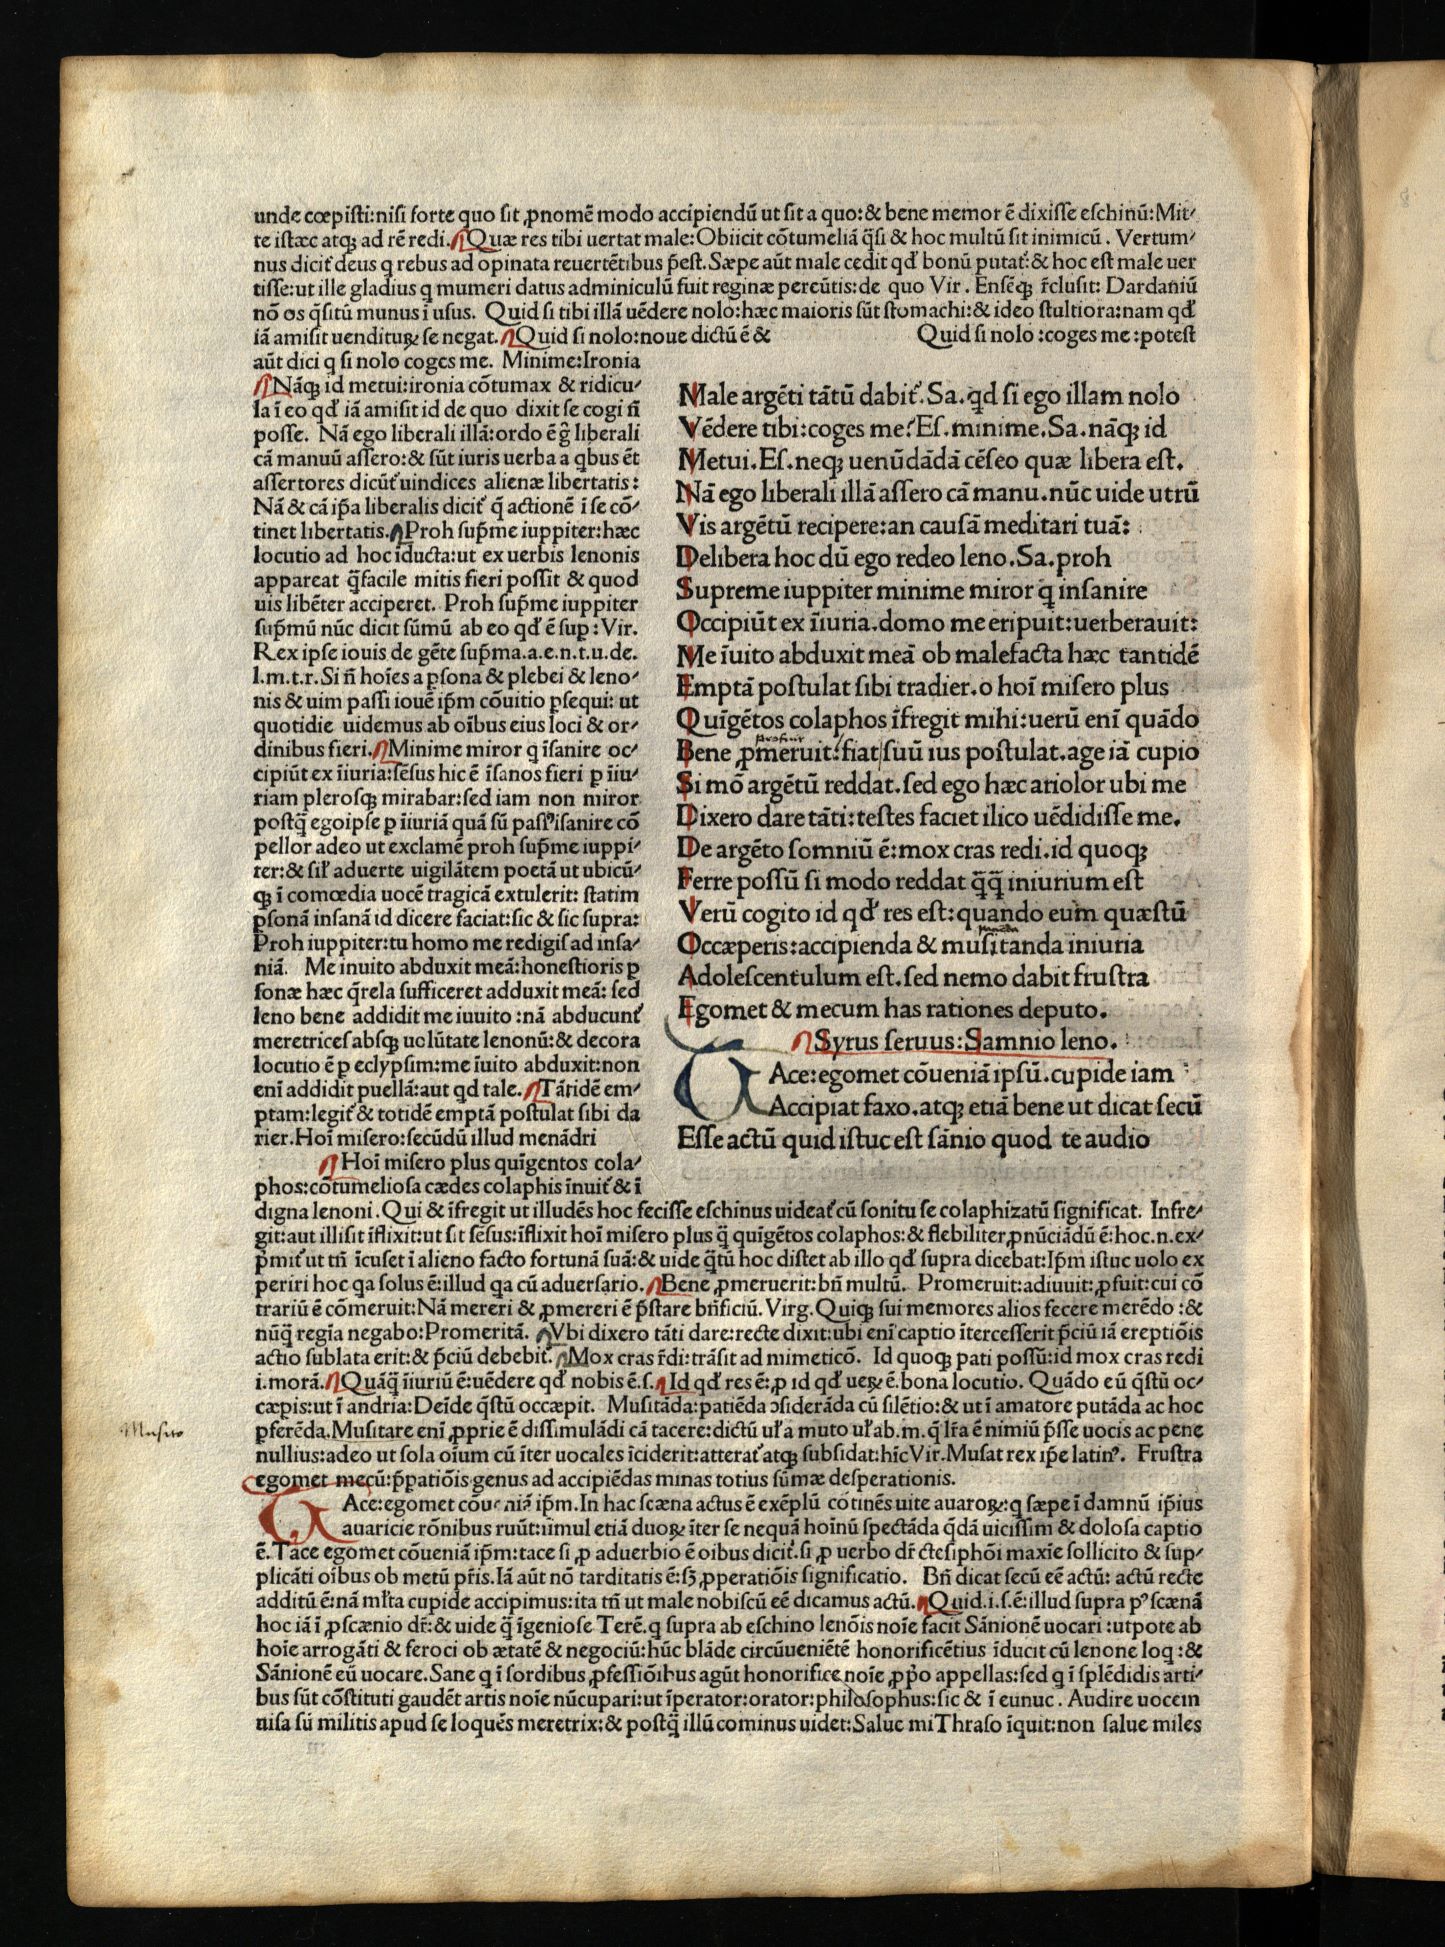 unde cœpisti:nisi forte quo sit ꝓnomẽ modo accipiendũ ut sit a quo:& bene memor ẽ dixisse eschinũ:Mit⸗
te istæc atqꝫ ad rẽ redi. Quæ res tibi uertat male:Obiicit cõtumeliã q̃si & hoc multũ sit inimicũ. Vertum⸗
nus dicit̃ deus q rebus ad opinata reuertẽtibus p̃est. Sæpe aũt male cedit qđ bonũ putat̃:& hoc est male uer
tisse:ut ille gladius q mumeri datus adminiculũ fuit reginæ percũtis:de quo Vir. Ensẽqꝫ r̃clusit: Dardaniũ
nõ os q̃sitũ munus ĩ usus. Quid si tibi illã uẽdere nolo:hæc maioris sũt stomachi:& ideo stultiora:nam qđ
iã amisit uenditurꝝ se negat. Quid si nolo:noue dictũ ẽ & Quid si nolo:coges me:potest
aũt dici q si nolo coges me. Minime:Ironia
Nãqꝫ id metui:ironia cõtumax & ridicu⸗
la ĩ eo qđ iã amisit id de quo dixit se cogi ñ
posse. Nã ego liberali illã:ordo ẽ g̃ liberali
cã manuũ assero:& sũt iuris uerba a qbus ẽt
assertores dicũt̃ uindices alienæ libertatis:
Nã & cã ip̃a liberalis dicit̃ q̃ actionẽ ĩ se cõ⸗
tinet libertatis. Proh sup̃me iuppiter:hæc
locutio ad hoc ĩducta:ut ex uerbis lenonis
appareat q̃facile mitis fieri possit & quod
uis libẽter acciperet. Proh sup̃me iuppiter
sup̃mũ nũc dicit sũmũ ab eo qđ ẽ sup:Vir.
Rex ipse iouis de gẽte sup̃ma.a.e.n.t.u.de.
l.m.t.r. Si ñ hoĩes a ꝑsona & plebei & leno⸗
nis & uim passi iouẽ ip̃m cõuitio ꝑsequi: ut
quotidie uidemus ab oĩbus eius loci & or⸗
dinibus fieri. Minime miror q ĩsanire oc⸗
cipiũt ex ĩiuria:sẽsus hic ẽ ĩsanos fieri ꝑ ĩiu⸗
riam plerosqꝫ mirabar:sed iam non miror
postq̃ egoipse ꝑ ĩiuriã quã sũ passꝰ ĩsanire cõ
pellor adeo ut exclamẽ proh sup̃me iuppi⸗
ter:& sił aduerte uigilãtem poetã ut ubicũ⸗
qꝫ ĩ comœdia uocẽ tragicã extulerit: statim
ꝑsonã insanã id dicere faciat:sic & sic supra:
Proh iuppiter:tu homo me redigis ad insa⸗
niã. Me inuito abduxit meã:honestioris ꝑ
sonæ hæc q̃rela sufficeret adduxit meã: sed
leno bene addidit me iuuito:nã abducunt̃
meretrices absqꝫ uolũtate lenonũ:& decora
locutio ẽ ꝑ eclypsim:me ĩuito abduxit:non
enĩ addidit puellã:aut qd tale. Tãtidẽ em⸗
ptam:legit̃ & totidẽ emptã postulat sibi da
rier. Hoĩ misero:secũdũ illud menãdri
Hoĩ misero plus quĩgentos cola⸗
phos:cõtumeliosa cædes colaphis ĩnuit̃ & ĩ
Male argẽti tãtũ dabit̃. Sa. qd si ego illam nolo
Vẽdere tibi:coges me? Es. minime. Sa. nãqꝫ id
Metui. Es. neqꝫ uenũdãdã cẽseo quæ libera est.
Nã ego liberali illã assero cã manu. nũc uide utrũ
Vis argẽtũ recipere:an causã meditari tuã:
Delibera hoc dũ ego redeo leno. Sa. proh
Supreme iuppiter minime miror q insanire
Occipiũt ex ĩiuria. domo me eripuit:uerberauit:
Me ĩuito abduxit meã ob malefacta hæc tantidẽ
Emptã postulat sibi tradier. o hoĩ misero plus
Quĩgẽtos colaphos ĩfregit mihi:uerũ enĩ quãdo
Bene ꝓmeruit:fiat suũ ius postulat. age iã cupio
Si mõ argẽtũ reddat. sed ego hæc ariolor ubi me
Dixero dare tãti:testes faciet ilico uẽdidisse me.
De argẽto somniũ ẽ:mox cras redi. id quoqꝫ
Ferre possũ si modo reddat q̃q̃ iniurium est
Verũ cogito id qđ res est:quando eum quæstũ
Occæperis:accipienda & musitanda iniuria
Adolescentulum est. sed nemo dabit frustra
Egomet & mecum has rationes deputo.
Syrus seruus:Samnio leno.
TAce:egomet cõueniã ipsũ. cupide iam
Accipiat faxo. atqꝫ etiã bene ut dicat secũ
Esse actũ quid istuc est sãnio quod te audio
digna lenoni. Qui & ĩfregit ut illudẽs hoc fecisse eschinus uideat̃ cũ sonitu se colaphizatũ significat. Infre⸗
git:aut illisit ĩflixit:ut sit sẽsus:ĩflixit hoĩ misero plus q̃ quĩgẽtos colaphos:& flebiliter ꝓnũciãdũ ẽ:hoc.n.ex⸗
p̃mit̃ ut tñ ĩcuset ĩ alieno facto fortunã suã:& uide q̃tũ hoc distet ab illo qđ supra dicebat:Ip̃m istuc uolo ex
periri hoc qa solus ẽ:illud qa cũ aduersario. Bene ꝓmeruerit:bñ multũ. Promeruit:adiuuit:ꝓfuit:cui cõ
trariũ ẽ cõmeruit:Nã mereri & ꝓmereri ẽ p̃stare bñficiũ. Virg. Quiqꝫ sui memores alios fecere merẽdo:&
nũq̃ regĩa negabo:Promeritã. Vbi dixero tãti dare:recte dixit:ubi enĩ captio ĩtercesserit p̃ciũ iã ereptiõis
actio sublata erit:& p̃ciũ debebit̃. Mox cras r̃di:trãsit ad mimeticõ. Id quoqꝫ pati possũ:id mox cras redi
i.morã. Quãq̃ ĩiuriũ ẽ:uẽdere qđ nobis ẽ.s. Id qđ res ẽ:ꝑ id qđ ueꝝ ẽ.bona locutio. Quãdo eũ q̃stũ oc⸗
cæpis:ut ĩ andria:Deĩde q̃stũ occæpit. Musitãda:patiẽda ɔsiderãda cũ silẽtio:& ut ĩ amatore putãda ac hoc
ꝑferẽda. Musitare enĩ ꝓprie ẽ dissimulãdi cã tacere:dictũ uł a muto uł ab.m.q̃ lr̃a ẽ nimiũ p̃sse uocis ac pene
Musito
nullius:adeo ut sola oĩum cũ ĩter uocales ĩciderit:atterat̃ atqꝫ subsidat:hĩc Vir. Musat rex ip̃e latinꝰ. Frustra
egomet mecũ:p̃ꝑatiõis genus ad accipiẽdas minas totius sũmæ desperationis.
TAce:egomet cõueniã ip̃m. In hac scæna actus ẽ exẽplũ cõtinẽs uite auaroꝝ:q sæpe ĩ damnũ ip̃ius
auaricie rõnibus ruũt:simul etiã duoꝝ ĩter se nequã hoĩnũ spectãda q̃dã uicissim & dolosa captio
ẽ. Tace egomet cõueniã ip̃m:tace si ꝓ aduerbio ẽ oibus dicit̃. si ꝓ uerbo dr̃ ctesiphõi maxĩe sollicito & sup⸗
plicãti oĩbus ob metũ pr̃is. Iã aũt nõ tarditatis ẽ:sꝫ ꝓperatiõis significatio. Bñ dicat secũ eẽ actũ: actũ recte
additũ ẽ:nã młta cupide accipimus:ita tñ ut male nobiscũ eẽ dicamus actũ. Quid.i.s.ẽ:illud supra pꝰ scænã
hoc iã ĩ ꝓscænio dr̃:& uide q̃ ĩgeniose Terẽ. q supra ab eschino lenõis noĩe facit Sãnionẽ uocari:utpote ab
hoĩe arrogãti & feroci ob ætatẽ & negociũ:hũc blãde circũueniẽtẽ honorificẽtius ĩducit cũ lenone loq:&
Sãnionẽ eũ uocare. Sane q ĩ sordibus ꝓfessiõibus agũt honorifice noĩe ꝓp̃o appellas:sed q ĩ splẽdidis arti⸗
bus sũt cõstituti gaudẽt artis noĩe nũcupari:ut ĩperator:orator:philosophus:sic & ĩ eunuc. Audire uocem
uisa sũ militis apud se loquẽs meretrix:& postq̃ illũ cominus uidet:Salue mi Thraso ĩquit:non salue miles